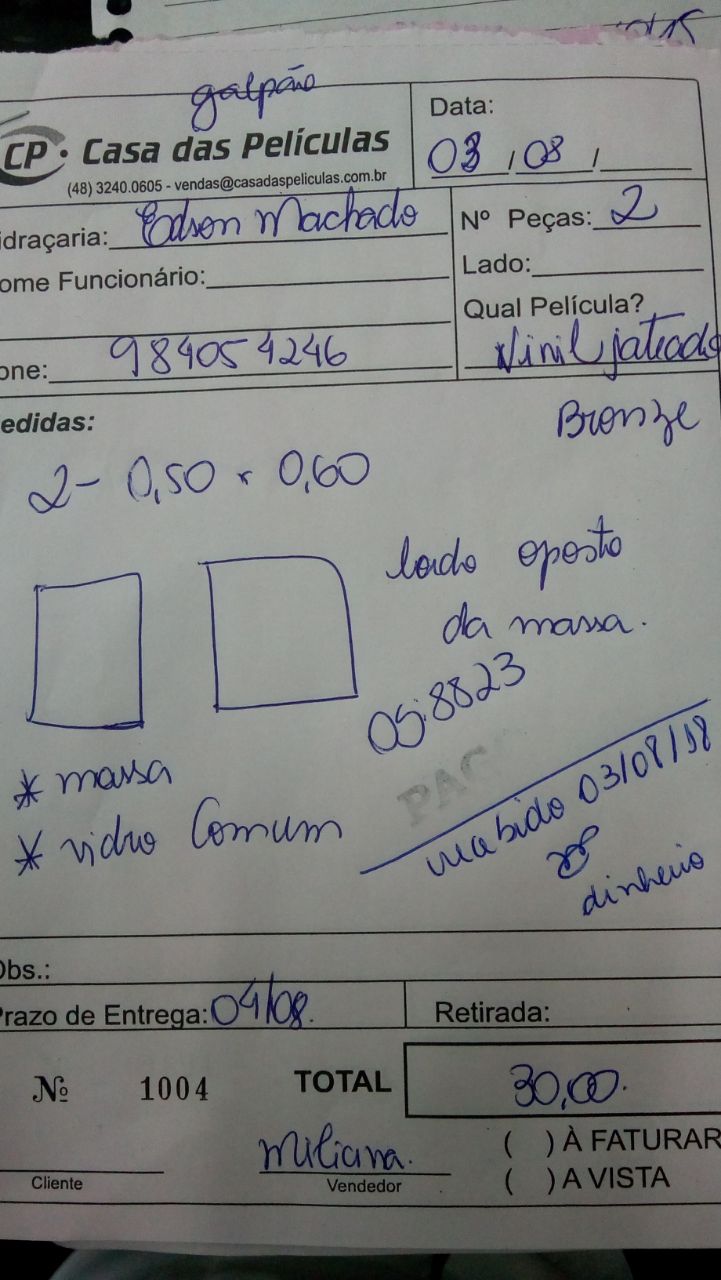 galpão
CP · Casa das Películas
(48) 3240.0605 - vendas@casadaspeliculas.com.br
Data:
03 / 08 /
idraçaria: Edson Machado
Nº Peças: 2
ome Funcionário:
Lado:
Qual Película?
Vinil jateado
one: 984054246
Bronze
edidas:
2- 0,50 x 0,60
lado oposto
da massa.
OS:8823
PAG
* massa
* vidro Comum
03/08/18
dinheiro
Obs.:
Prazo de Entrega: 04/08.
Retirada:
Nº 1004
TOTAL
30,00.
Miliana.
Cliente
Vendedor
( ) À FATURAR
( ) A VISTA